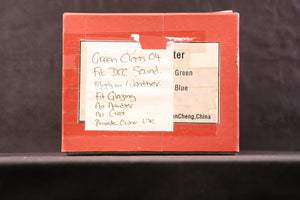 Green Class 04
Fit DCC Sound.
Medium Weather
Fit Glazing
No Number
No Crest
Private Owner Use
ter
Green
Blue
nCheng,China